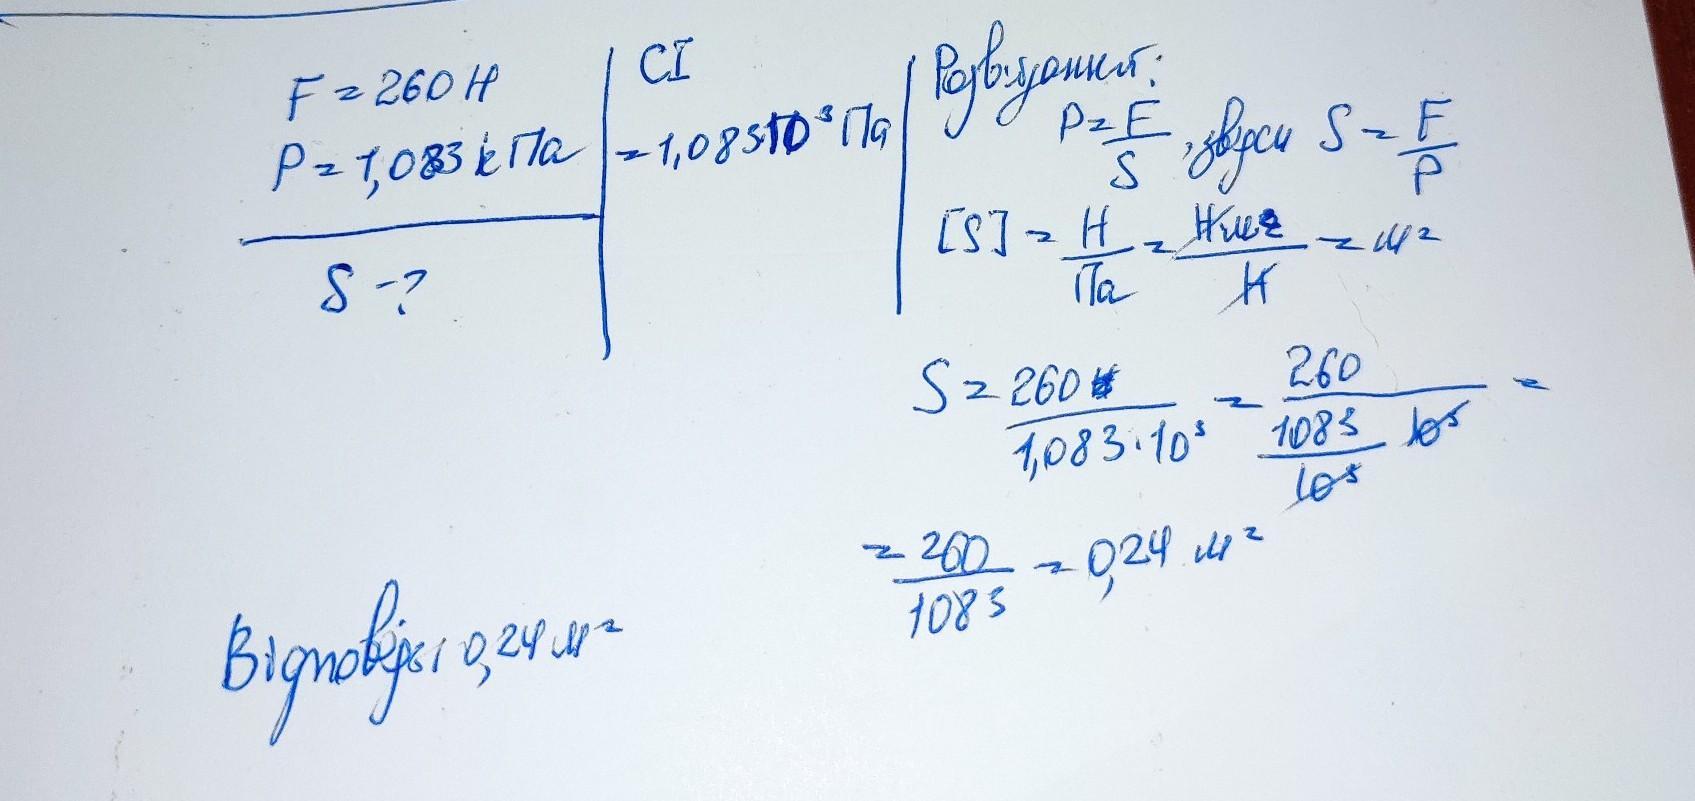 F = 260 Н
P = 1,083 кПа
S - ?
СІ
= 1,083·10³ Па
Розв'язання:
P = F/S, звідси S = F/P
[S] = Н/Па = Нм²/Н = м²
S = 260/1,083·10³ = 260/(1083/10³ 10³) =
= 260/1083 = 0,24 м²
Відповідь: 0,24 м²